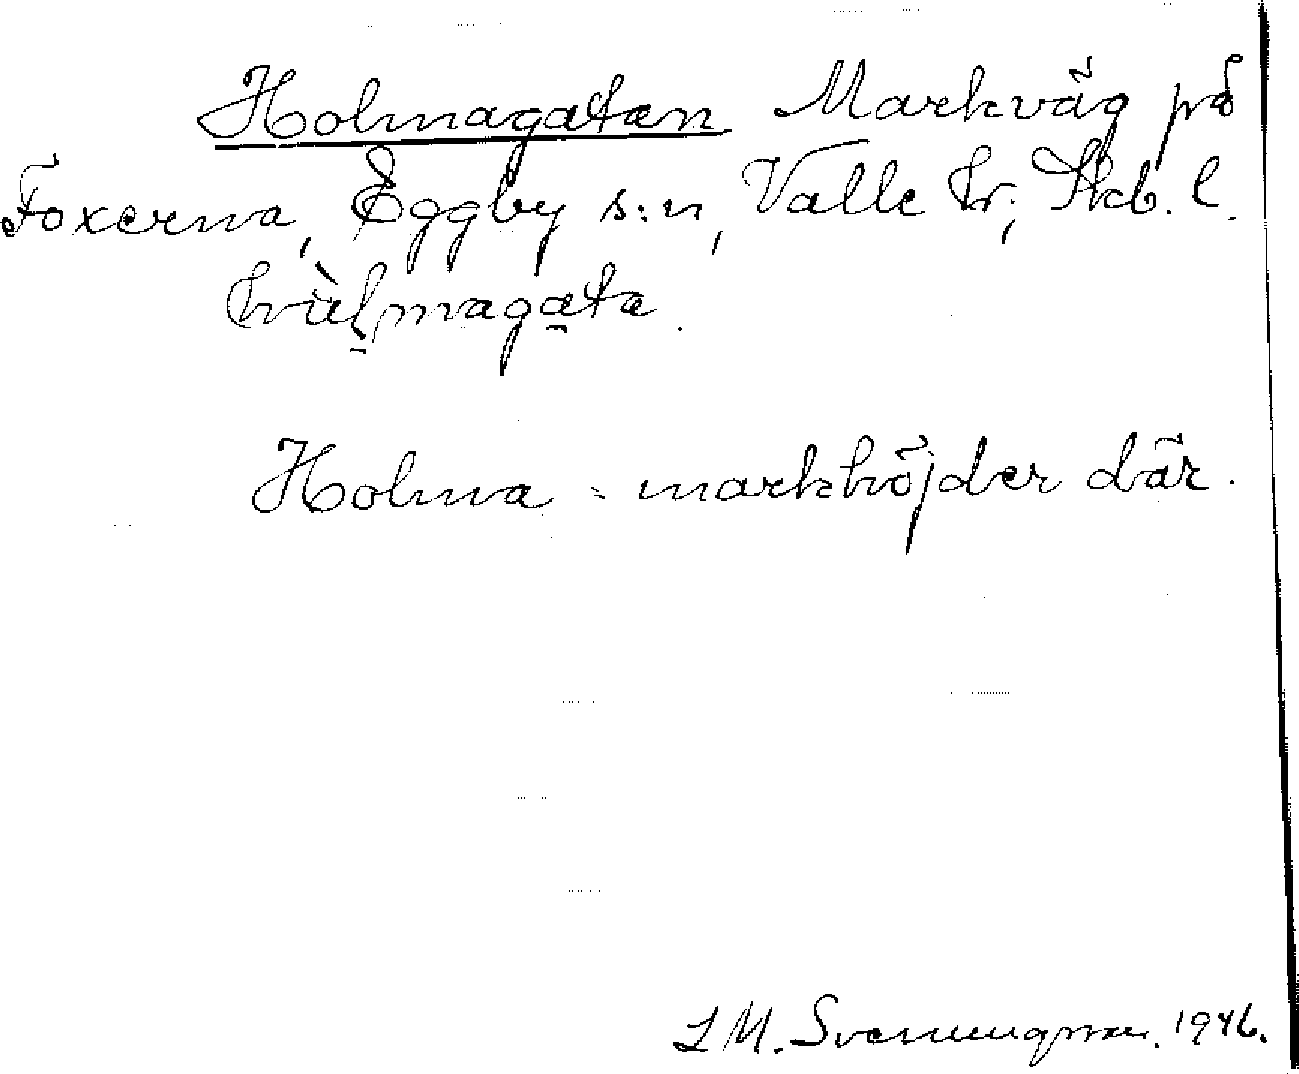 Holmagatan Markväg på
Foxerna, Eggby s:n, Valle hr; Skb. l.
hùl̠maga̠ta.
Holma = markhöjder där.
L M. Svenungsson. 1946.